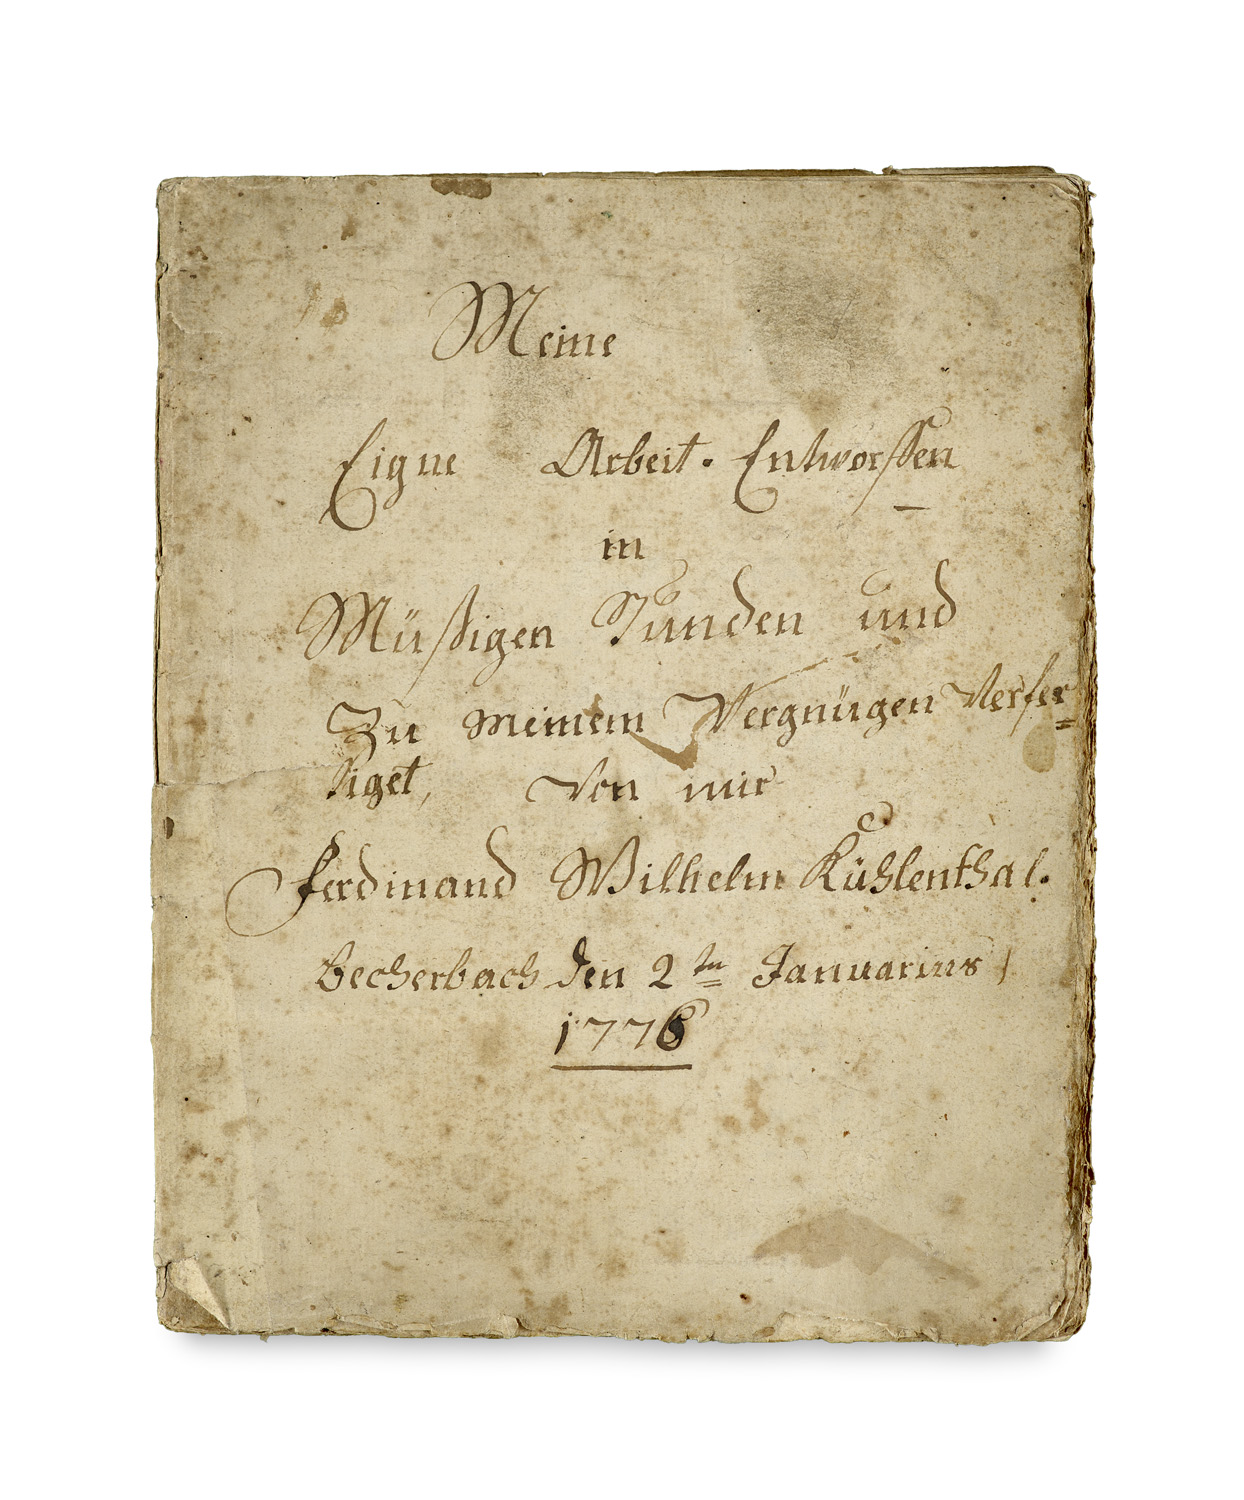 Meine
Eigne Arbeit. Entworffen
in
Müßigen Stunden und
Zu meinem Vergnügen Verfer=
tiget, Von mir
Ferdinand Wilhelm Kühlenthal.
Becherbach den 2ten Januarius /
1776